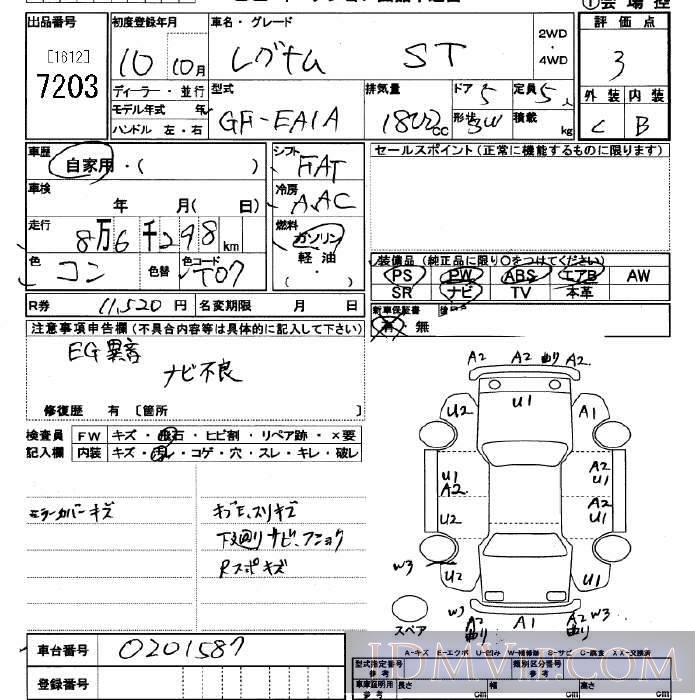 出品番号 初度登録年月 車名・グレード 評価点
[1612]
7203
10 10月 レグナム ST
2WD
・
4WD
3
ディーラー・並行
モデル年式 年
ハンドル 左・右
型式 GF-EA1A
排気量 1800cc
ドア 5
形状 5W
定員 5人
積載 kg
外装 内装
C B
車歴 自家用・( )
シフト FAT
セールスポイント(正常に機能するものに限ります)
車検 年 月( 日)
冷房 AAC
走行 8万6千298km
燃料 ガソリン
軽油
( ・ )
色 コン 色替 色コード T07
装備品(純正品に限り○をつけてください)
PS PW ABS エアB AW
SR ナビ TV 本革
R券 11,520円 名変期限 月 日
新車保証書
有 無
注意事項申告欄(不具合内容等は具体的に記入して下さい)
EG異音
ナビ不良
修復歴 有 〔箇所 〕
検査員 FW キズ・飛石・ヒビ割・リペア跡・×要
記入欄 内装 キズ・汚レ・コゲ・穴・スレ・キレ・破レ
ミラーカバーキズ
キズE、スリキズ
下廻りサビ、フショク
Rスポキズ
A2 A2 曲り A2
U2 U1 A1
U1 A2
A2 U1
U2 A2 U1
W3 U2 U1
W3 A2 曲り A1 A2 曲り W3
スペア
A-キズ E-エクボ U-凹み W-補修跡 S-サビ C-腐食 XX-交換済
車台番号 0201587
登録番号
型式指定番号 参考
類別区分番号
車庫証明用 参考 長さ cm 幅 cm 高さ cm
JDMVIP.COM